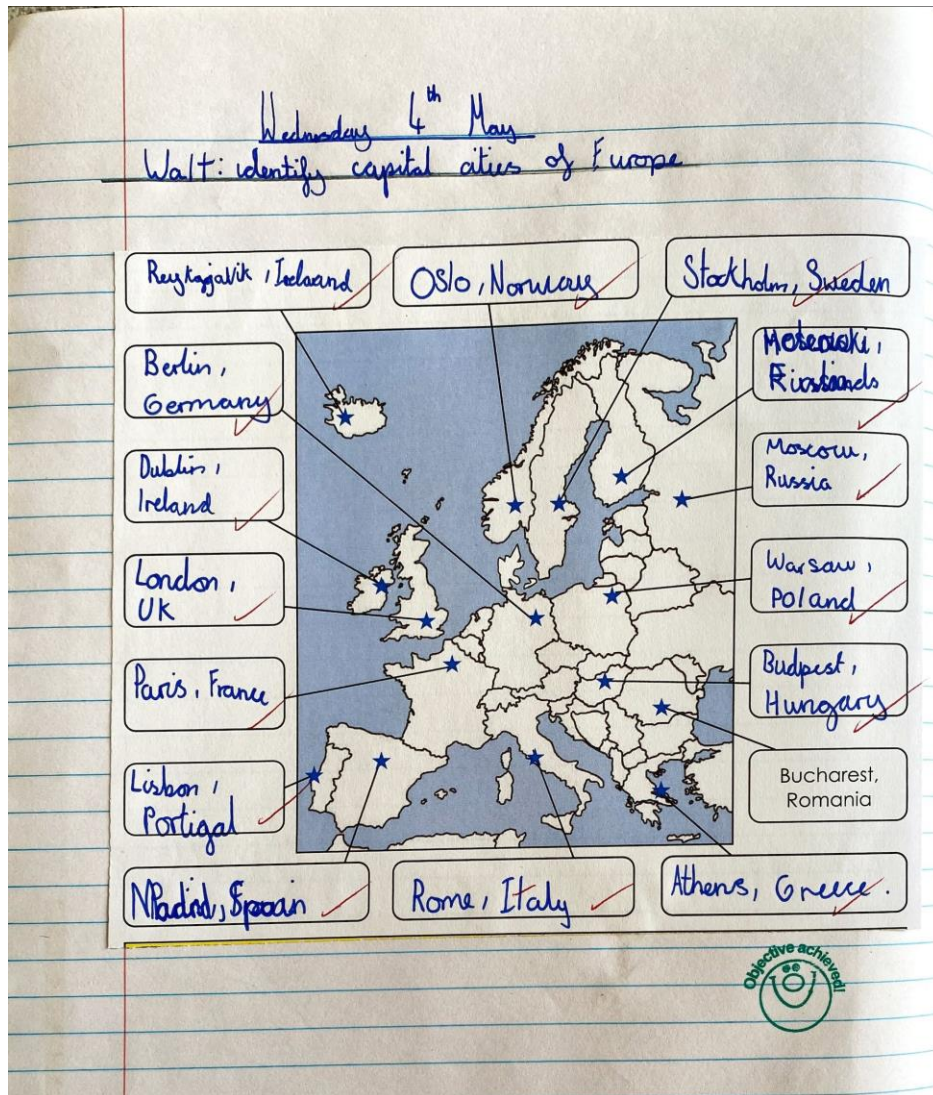 Wednesday 4th May
Walt: identify capital cities of Europe
Reykajavik, Iceland
Oslo, Norway
Stockholm, Sweden
Berlin,
Germany
Dublin,
Ireland
Moscow,
Russia
London,
UK
Warsaw,
Poland
Paris, France
Budpest,
Hungary
Lisbon,
Portigal
Bucharest,
Romania
Madrid, Spain
Rome, Italy
Athens, Greece.
Objective achieved!